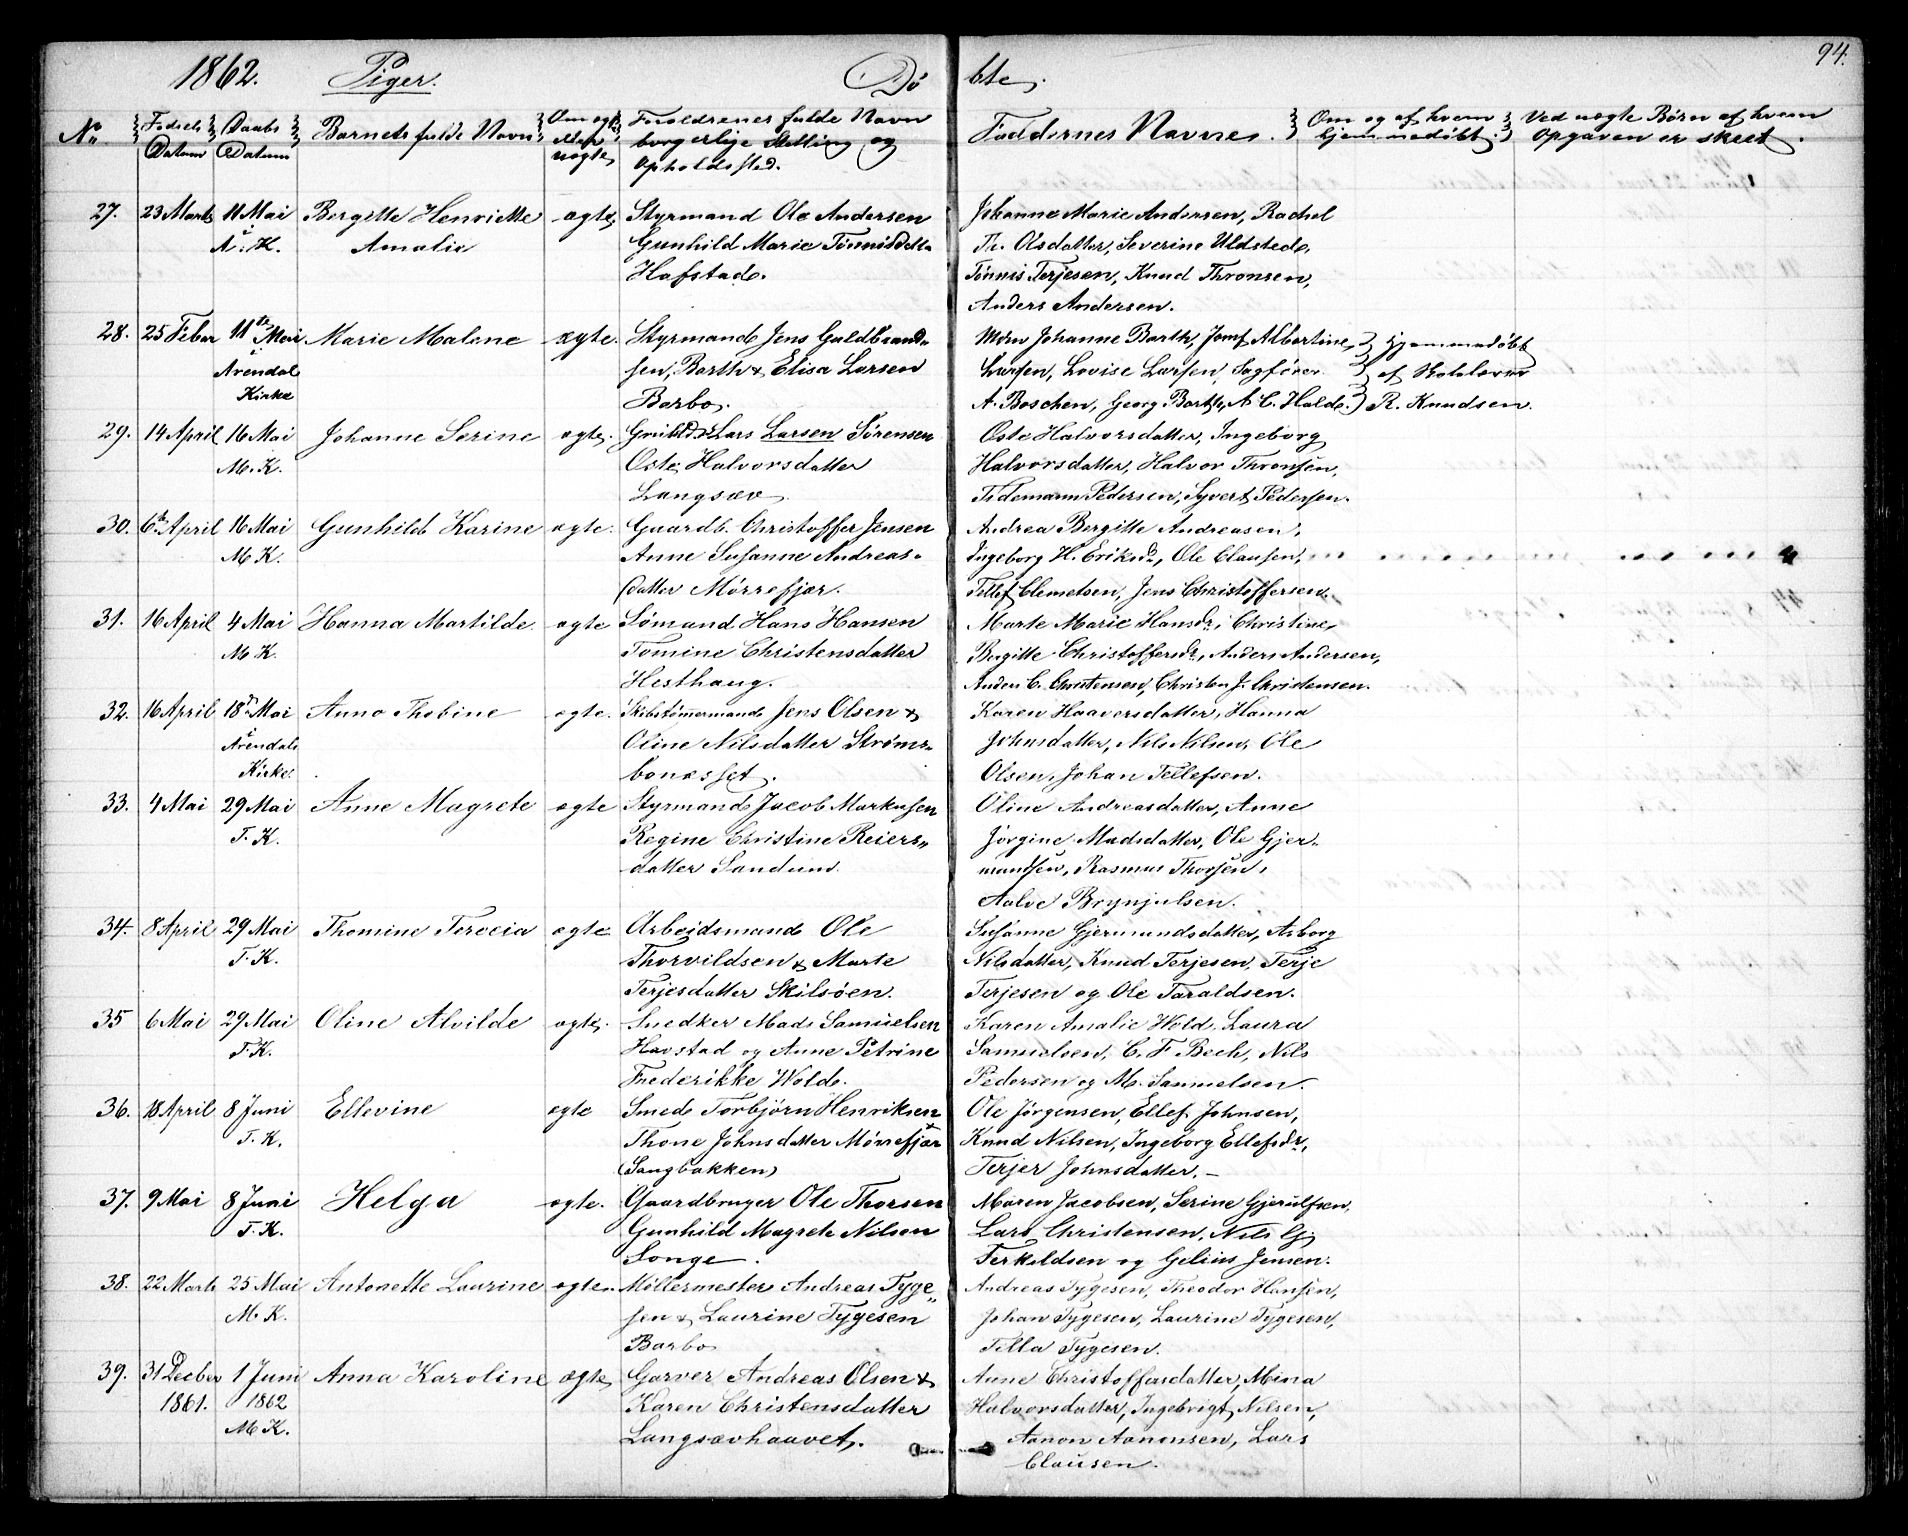 94.
1862. Piger. Døbte.
No. Fødsels Datum Daabs Datum Barnets fulde Navn Om ægte eller uægte Forældrenes fulde Navn borgerlige Stilling og Opholdssted. Faddernes Navne. Om og af hvem hjemmedøbt. Ved uægte Børn af hvem Opgaven er skeet.
27. 23 Marts 11 Mai Bergitte Henriette ægte Styrmand Ole Andersen Johanne Marie Andersen, Rachel
A. K. Amalie Gunhild Marie Tønnisdatt. Th. Olsdatter, Severine Uldstede,
Hafstad. Tønnis Terjesen, Knud Thronsen,
Anders Andersen.
28. 25 Febar 11te Mai Marie Malene ægte. Styrmand Jens Guldbrand- Johanne Barth, Jomf Albertine hjemmedøbt
i Arendal sen, Barth & Elisa Larsen Larsen, Lovise Larsen, Sagfører af Skolelærer
Kirke Barbo. A. Boschen, Georg Barth, A C. Halde. R. Knudsen.
29. 14 April 16 Mai Johanne Serine ægte. Lars Larsen Sørensen Oste Halvorsdatter, Ingeborg
M. K. Oste Halvorsdatter Halvorsdatter, Halvor Thronsen,
Langsæv Tidemann Pedersen, Syvert Pedersen.
30. 6te April 16 Mai Gunhild Karine ægte. Gaardb. Christoffer Jensen Andrea Bergitte Andreasen,
M K. Anne Susanne Andreas- Ingeborg H. Eriksdr, Ole Clausen,
datter Mørrefjær. Tellef Clemetsen, Jens Christoffersen.
31. 16 April 4 Mai Hanna Martilde ægte Sømand Hans Hansen Marte Marie Hansdr, Christine,
M K. Tomine Christensdatter Bergitte Christoffersdr, Anders Andersen,
Hesthaug. Anders C. Christensen, Christen J. Christensen.
32. 16 April 18de Mai Anne Thobine ægte. Skibstømmermand Jens Olsen & Karen Haaversdatter, Hanna
i Arendals Oline Nilsdatter Strøms- Johnsdatter, Nils Nilsen, Ole
Kirke. bonesset. Olsen, Johan Tellefsen.
33. 4 Mai 29 Mai Anne Magrete ægte Styrmand Jacob Markusen Oline Andreasdatter, Anne
T. K. Regine Christine Reiers- Jørgine Madsdatter, Ole Gjer-
datter Sandum. mundsen, Rasmus Thorsen,
Aalve Brynjulsen.
34. 8 April 29 Mai Thomine Tereeia ægte Arbeidsmand Ole Susanne Gjermundsdatter, Asborg
T. K. Thorvildsen & Marte Nilsdatter, Knud Terjesen, Terje
Terjesdatter Skilsøen. Terjesen og Ole Taraldsen.
35 6 Mai 29 Mai Oline Alvilde ægte. Snedker Mads Samuelsen Karen Amalie Wold, Laura
T. K. Havstad og Anne Petrine Samuelsen, C. F. Bech, Nils
Frederikke Wold. Pedersen og M. Samuelsen.
36. 18 April 8 Juni Ellevine ægte Smed Torbjørn Henriksen Ole Jørgensen, Ellef Johnsen,
T. K. Thone Johnsdatter Mørrefjær Knud Nilsen, Ingeborg Ellefsdr,
(Sangbakken) Terjer Johnsdatter. -
37. 9 Mai 8 Juni Helga ægte. Gaardbruger Ole Thorsen Maren Jacobsen, Serine Gjerulfsen,
T. K. Gunhild Magrete Nilsen Lars Christensen, Nils Gj.
Songe. Terkeldsen og Gelius Jensen.
38. 22 Marts 25 Mai Antonette Laurine ægte. Møllermester Andreas Tyge- Andreas Tygesen, Theodor Hansen,
M. K. sen & Laurine Tygesen Johan Tygesen, Laurine Tygesen,
Barbo Tilla Tygesen.
39. 31 Decber 1 Juni Anna Karoline ægte Garver Andreas Olsen & Anne Christoffersdatter, Mina
1861. 1862 Karen Christensdatter Halvorsdatter, Ingebrigt Nilsen,
M K. Langsævhaavet. Aanon Aanonsen, Lars
Clausen.